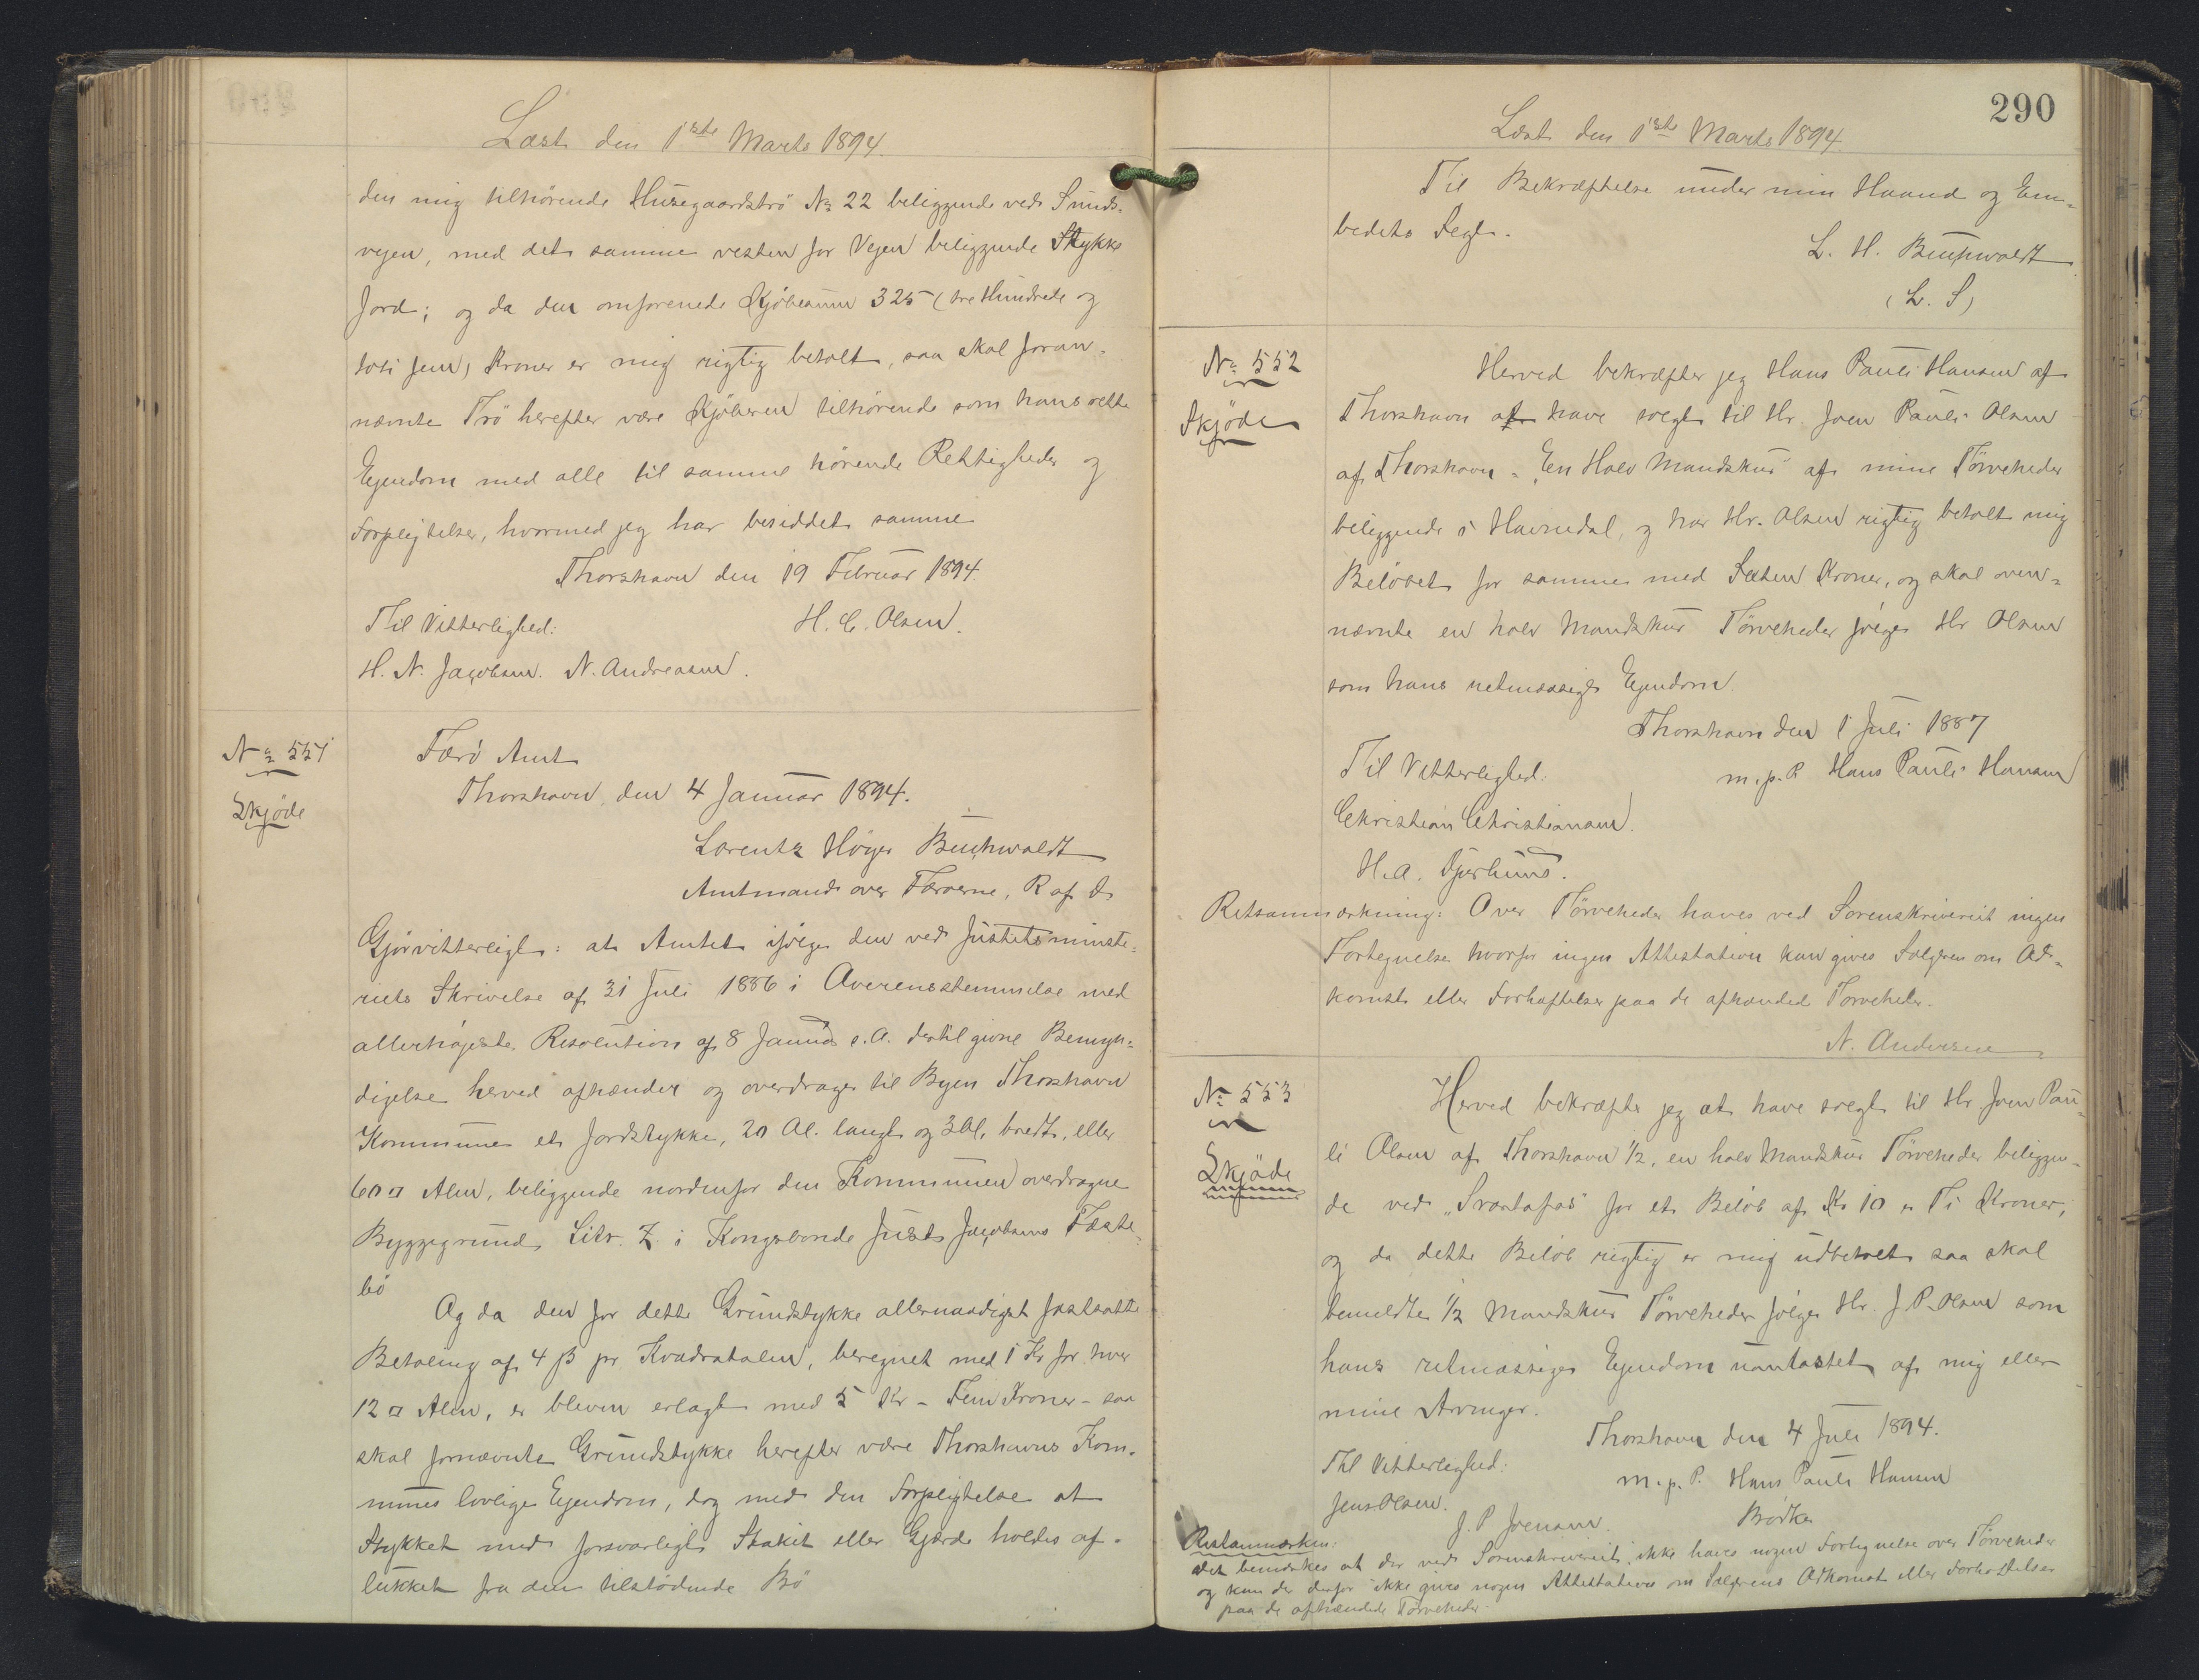 Læst den 1ste Marts 1894.
den mig tilhørende Husegaardströ No 22 beliggende ved Sunds=
vejen, med det samme vesten for Vejen beliggende Stykke
Jord; og da den omforenede Kjøbesum 325 (tre Hundrede og
toti fem) Kroner er mig rigtig betalt, saa skal foran-
nævnte Trö herefter være Kjøberen tilhørende som hans rette
Ejendom med alle til samme hørende Rettigheder og
Forpligtelser, hvormed jeg har besiddet samme
Thorshavn den 19 Februar 1894.
Til Vitterlighed: H. C. Olsen.
H. N. Jacobsen. N. Andreasen.
No 551
Skjöde
Færö Amt
Thorshavn, den 4 Januar 1894.
Lorentz Höyer Buchwaldt
Amtmand over Færøerne, R af D
Gjör vitterligt: at Amtet ifølge den ved Justitsministe=
riets Skrivelse af 31 Juli 1886 i Overensstemmelse med
allerhøjeste Resolution af 8 Januar s. A. dertil givne Bemyn=
digelse herved afhænder og overdrager til Byen Thorshavn
Kommune et Jordstykke, 20 Al. langt og 3 Al. bredt, eller
60 □ Alen, beliggende nordenfor den Kommunen overdragne
Byggegrund Litr. Z. i Kongsbonde Just Jacobsens Fæste-
bö
Og da den for dette Grundstykke allernaadigst fastsatte
Betaling af 4 ß pr Kvadratalen, beregnet med 1 Kr for hver
12 □ Alen, er bleven erlagt med 5 Kr - Fem Kroner - saa
skal fornævnte Grundstykke herefter være Thorshavns Kom-
munes lovlige Ejendom, dog med den Forpligtelse at
Stykket med forsvarligt Stakit eller Gjærde holdes af-
lukket fra den tilstødende Bö
290
Læst den 1ste Marts 1894.
Til Bekræftelse under min Haand og Em=
bedets Segl.
L. H. Buchwaldt
(L. S)
No 552
Skjöde
Herved bekræfter jeg Hans Pauli Hansen af
Thorshavn at have solgt til Hr. Joen Pauli Olsen
af Thorshavn - En Halv Mandskur af mine Tørveheder
beliggende i Havnedal, og har Hr. Olsen rigtig betalt mig
Beløbet for samme med Sexten Kroner, og skal oven=
nævnte en halv Mandskur Tørveheder følge Hr Olsen
som hans retmæssige Ejendom.
Thorshavn den 1 Juli 1887
Til Vitterlighed: m. p. P. Hans Pauli Hansen
Christian Christiansen.
H. A. Djurhuus.
Retsanmærkning: Over Tørveheder haves ved Sorenskriveriet ingen
Fortegnelse hvorfor ingen Attestation kan gives Sælgeren om Ad=
komst eller Forhæftelser paa de afhændede Tørveheder.
N. Andersen
No 553
Skjöde
Herved bekræfter jeg at have solgt til Hr Joen Pau=
li Olsen af Thorshavn 1/2, en halv Mandskur Tørveheder beliggen-
de ved "Svartafos" for et Beløb af Kr 10 = Ti Kroner,
og da dette Beløb rigtig er mig udbetalt saa skal
bemeldte 1/2 Mandskur Tørveheder følge Hr. J. P. Olsen som
hans retmæssige Ejendom uantastet af mig eller
mine Arvinger.
Thorshavn den 4 Juli 1894.
Til Vitterlighed: m. p. P. Hans Pauli Hansen
Jens Olsen.
J. P Joensen.
Retsanmærkn:
Det bemærkes at der ved Sorenskriveriet ikke haves nogen Fortegnelse over Tørveheder
og kan der derfor ikke gives nogen Attestation om Sælgerens Adkomst eller Forhæftelser
paa de afhændede Tørveheder.